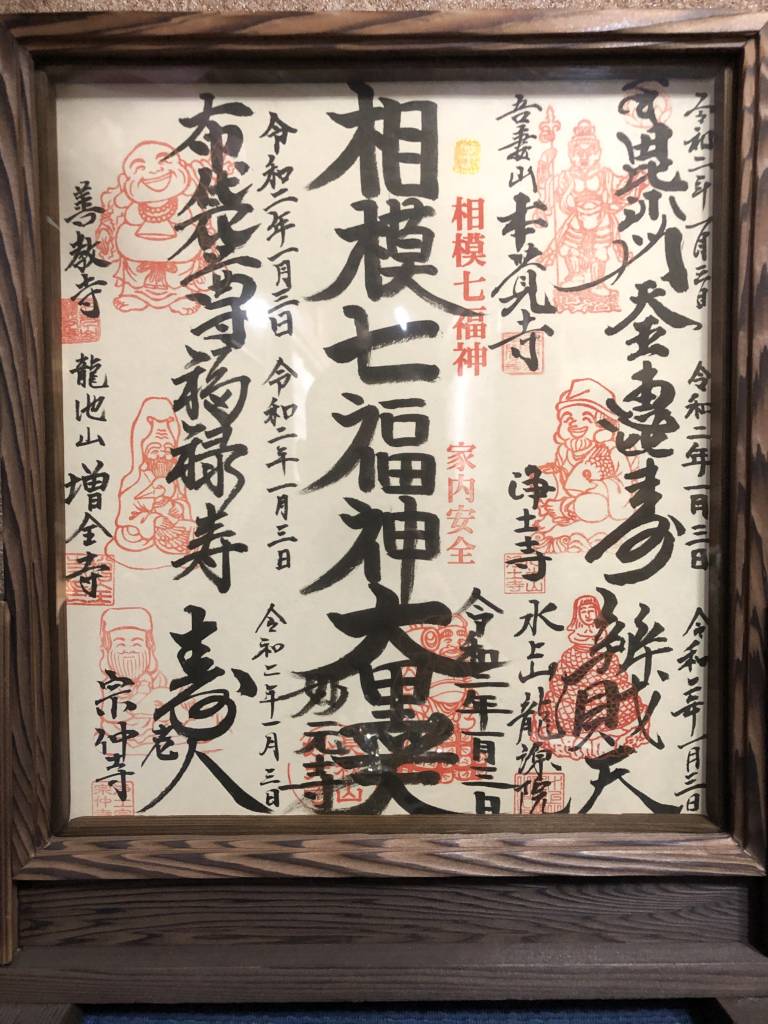 令和二年一月三日
毘沙門天
吾妻山 本覚寺
令和二年一月三日
恵比寿
浄土寺
令和二年一月三日
辨財天
水上山 龍源院
相模七福神 家内安全
相模七福神
大黒天
令和二年一月三日
妙元寺
令和二年一月三日
布袋尊
善教寺
令和二年一月三日
福禄寿
龍池山 増全寺
令和二年一月三日
寿老人
宗仲寺